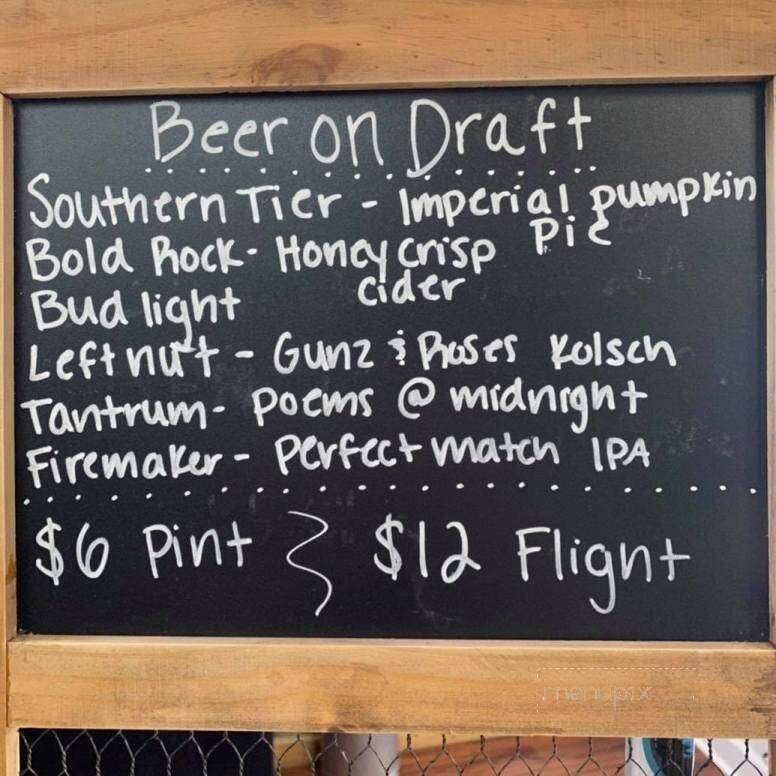 Beer on Draft
Southern Tier - Imperial pumpkin
Pie
Bold Rock - Honey crisp
cider
Bud light
Left nut - Gunz & Roses Kolsch
Tantrum - Poems @ midnight
Firemaker - Perfect match IPA
$6 Pint $12 Flight
menupix